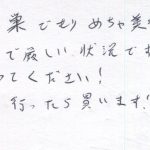 巣ごもり めちゃ美
で厳しい 状況です
ってください!
行ったら買います!